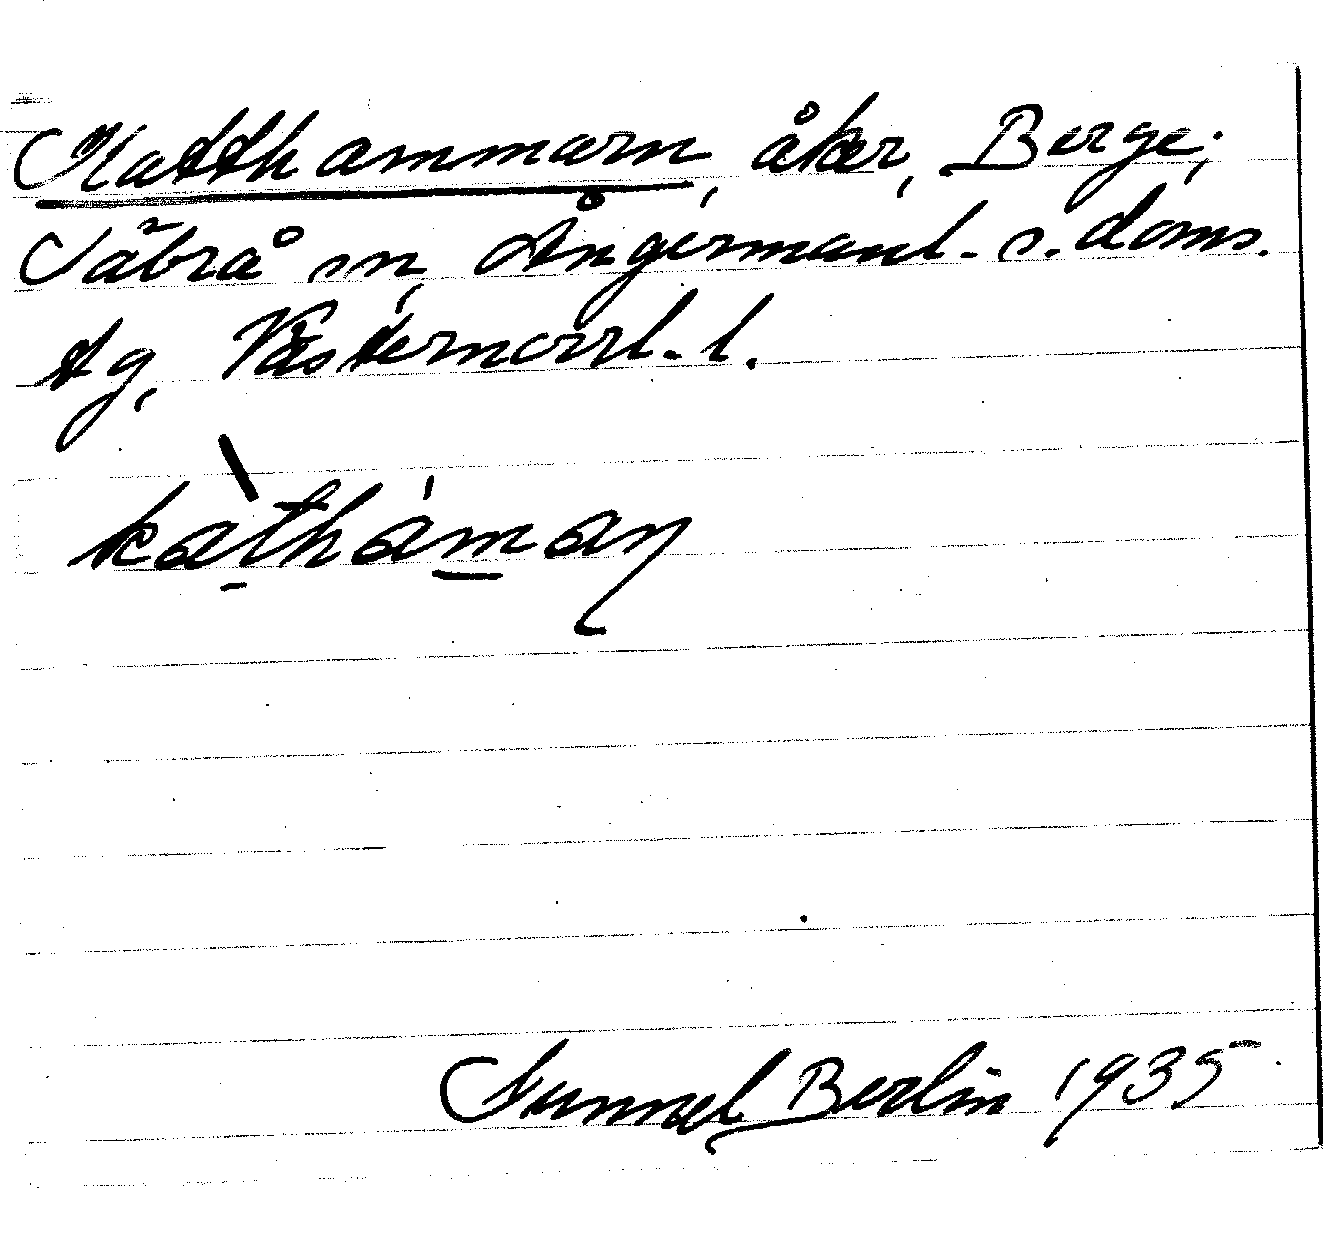 Katthammarn, åker, Berge;
Säbrå sn, Ångermanl. s. doms.
tg, Västernorrl. l.
kàthámaɳ
Gunnel Berlin 1935